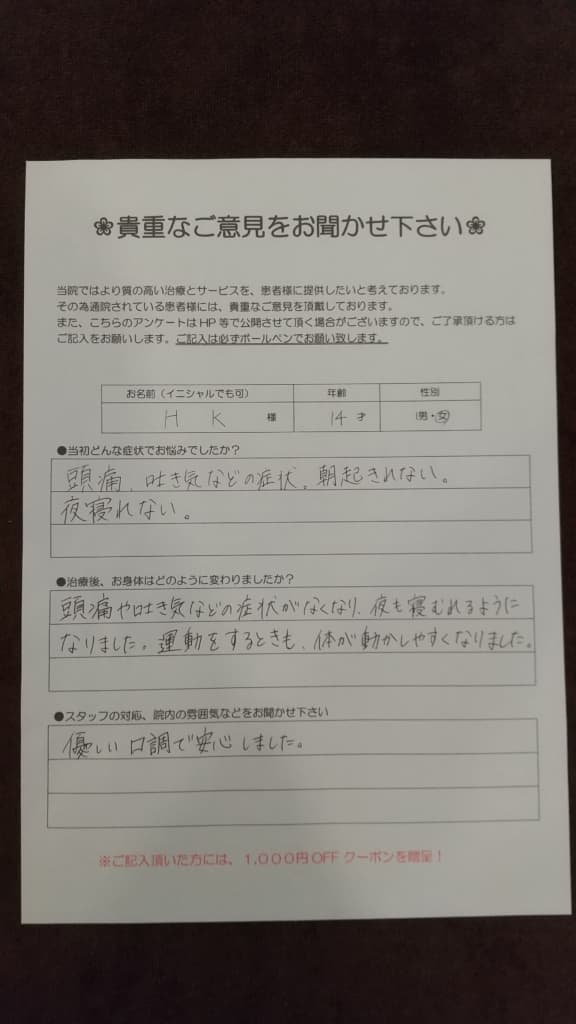 ❀貴重なご意見をお聞かせ下さい❀
当院ではより質の高い治療とサービスを、患者様に提供したいと考えております。
その為通院されている患者様には、貴重なご意見を頂戴しております。
また、こちらのアンケートはHP等で公開させて頂く場合がございますので、ご了承頂ける方は
ご記入をお願いします。ご記入は必ずボールペンでお願い致します。
お名前（イニシャルでも可） 年齢 性別
H K 様 14 才 男・女
●当初どんな症状でお悩みでしたか？
頭痛、吐き気などの症状。朝起きれない。
夜寝れない。
●治療後、お身体はどのように変わりましたか？
頭痛や吐き気などの症状がなくなり、夜も寝むれるように
なりました。運動をするときも、体が動かしやすくなりました。
●スタッフの対応、院内の雰囲気などをお聞かせ下さい
優しい口調で安心しました。
※ご記入頂いた方には、1,000円OFFクーポンを贈呈！